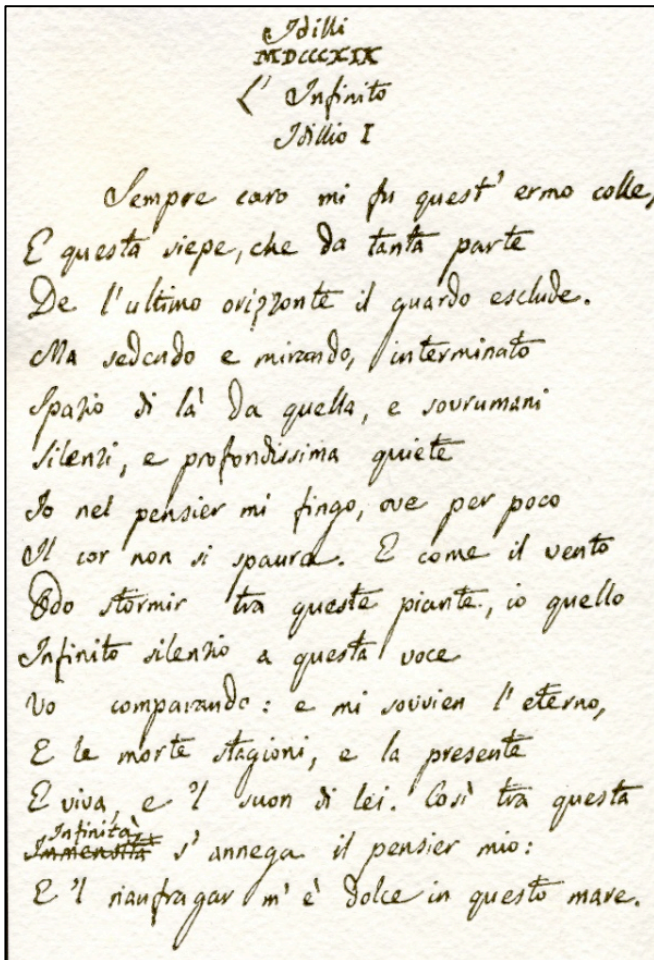 Idilli
MDCCCXIX
L' Infinito
Idillio I
Sempre caro mi fu quest' ermo colle,
E questa siepe, che da tanta parte
De l'ultimo orizzonte il guardo esclude.
Ma sedendo e mirando, interminato
Spazio di là da quella, e sovrumani
Silenzi, e profondissima quiete
Io nel pensier mi fingo, ove per poco
Il cor non si spaura. E come il vento
Odo stormir tra queste piante, io quello
Infinito silenzio a questa voce
Vo comparando: e mi sovvien l'eterno,
E le morte stagioni, e la presente
E viva, e 'l suon di lei. Così tra questa
Infinità
Immensità s'annega il pensier mio:
E 'l naufragar m'è dolce in questo mare.